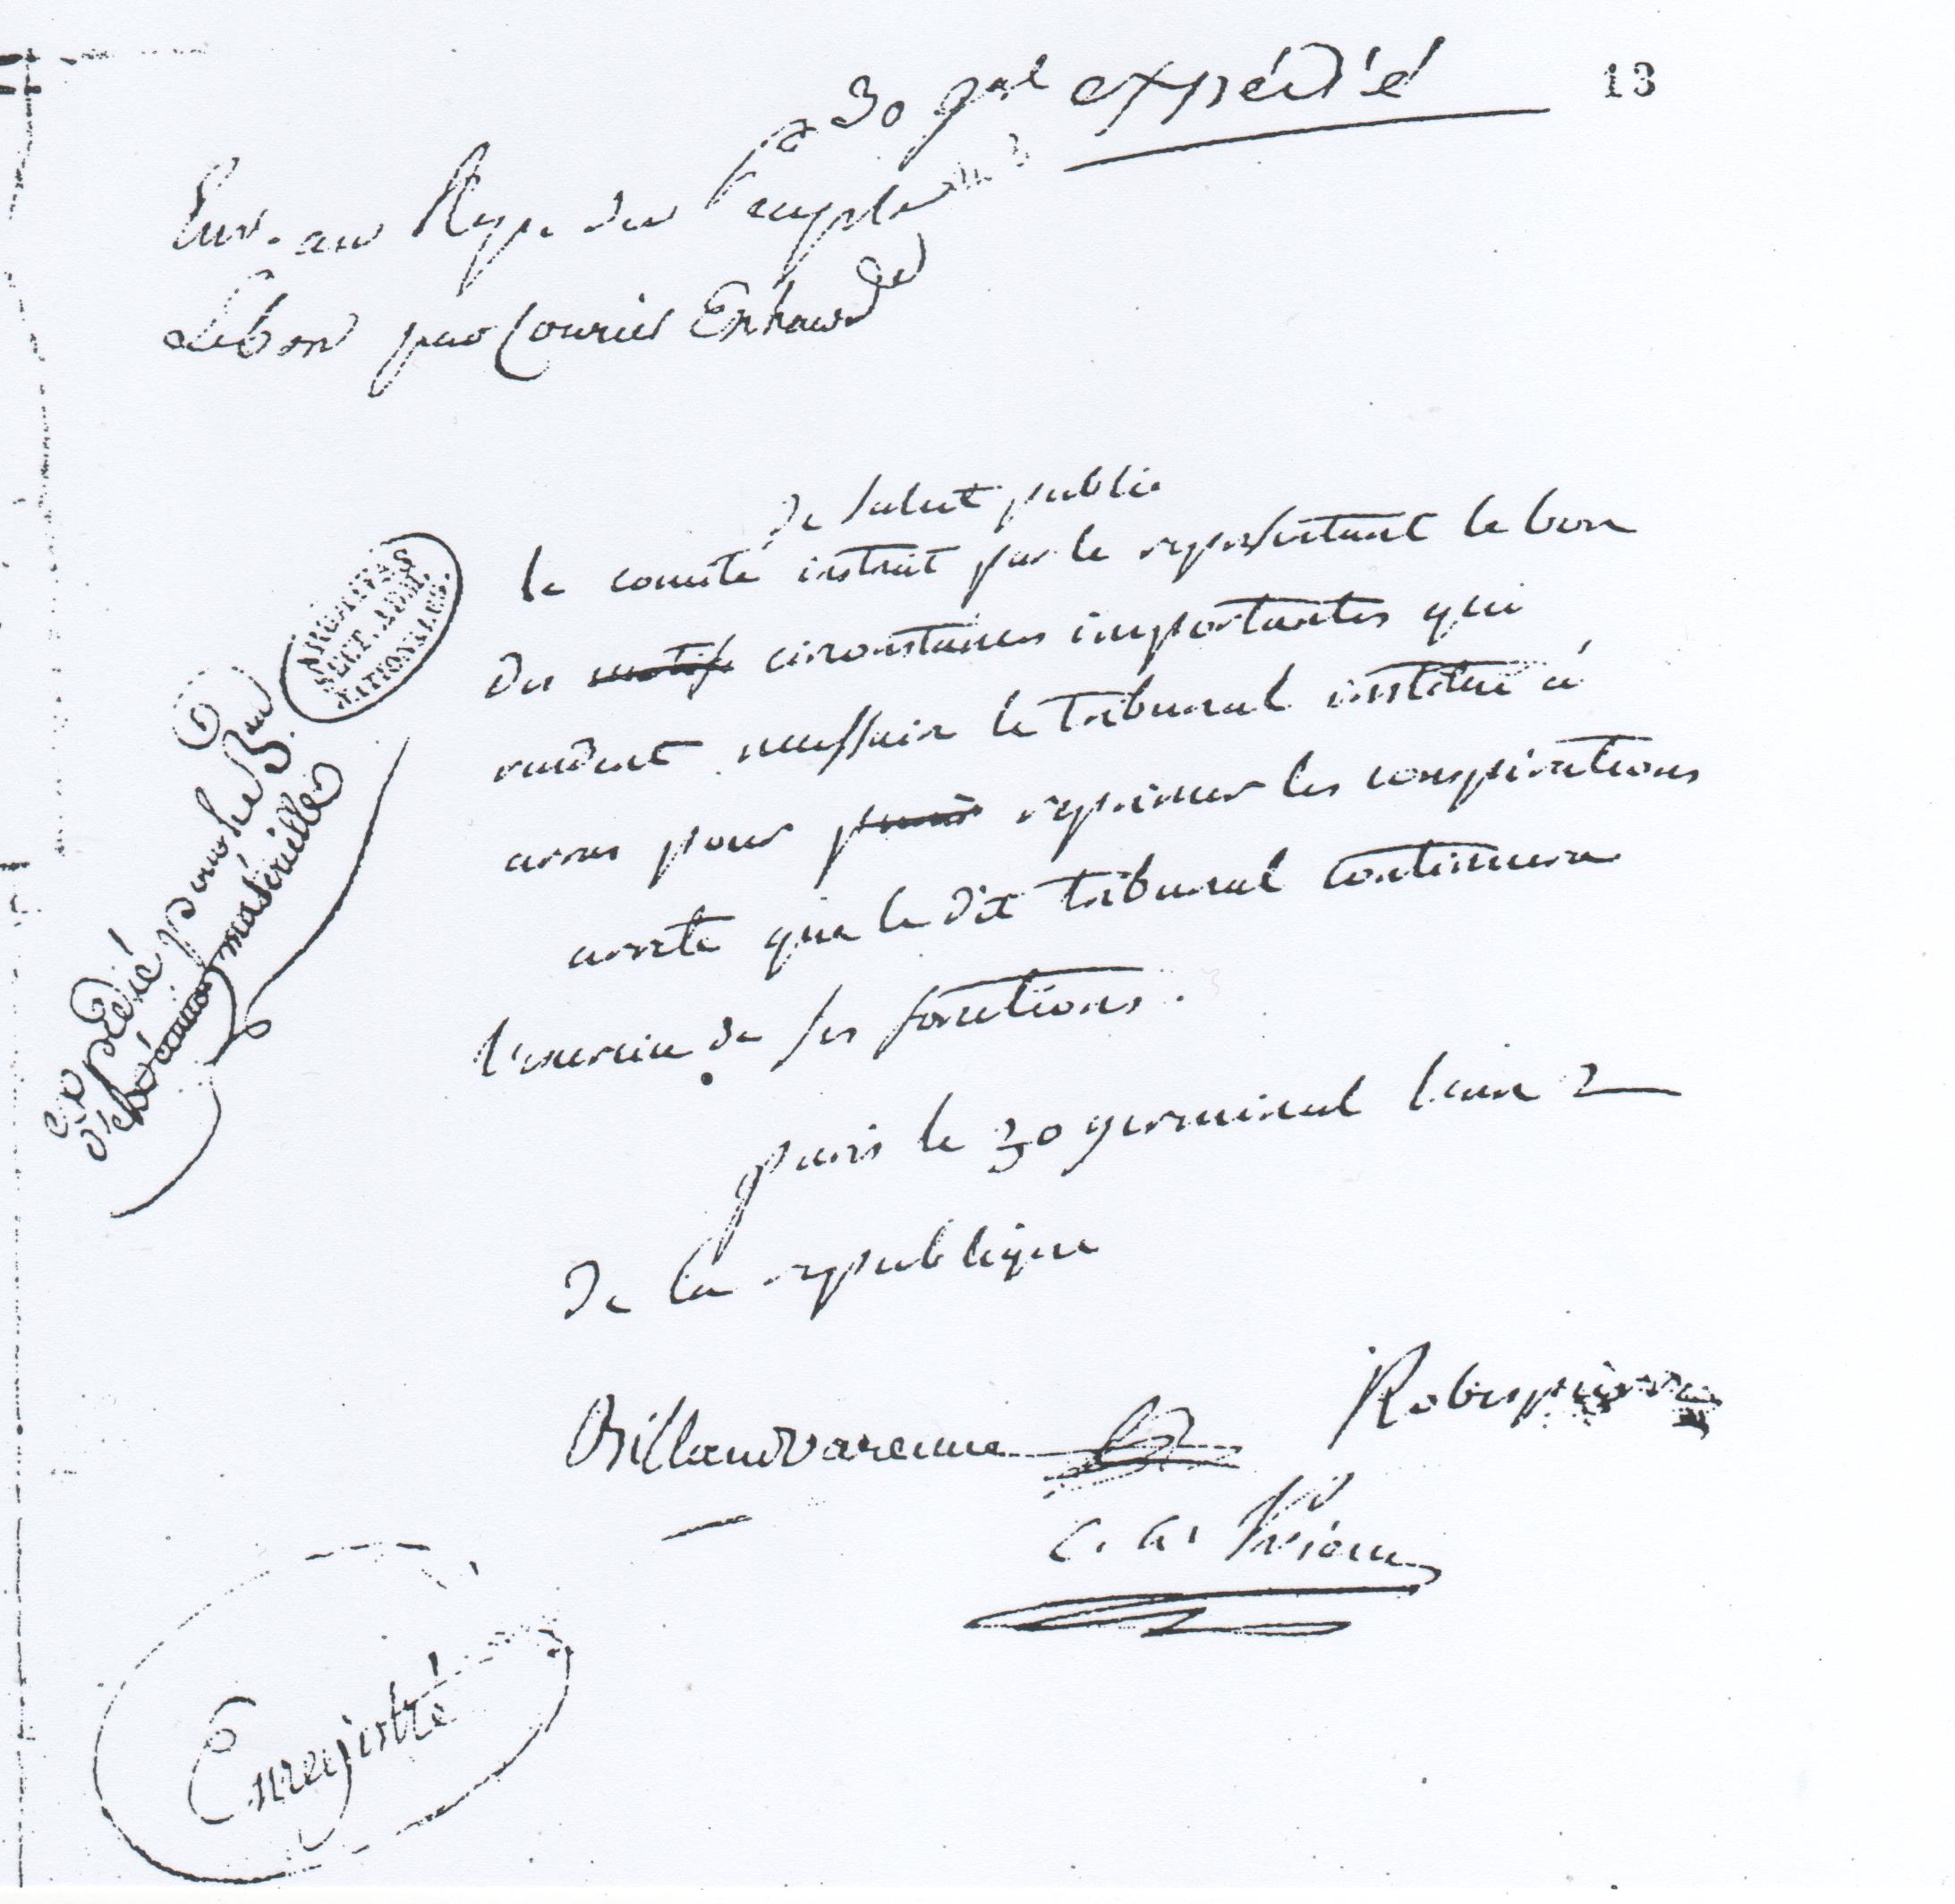 30 g.al expédié
13
Env. au Rep. du Peuple
Lebon par Courier Extraord
de salut public
le comité instruit par le representant le bon
des motifs circonstances importantes qui
rendent necessaire le tribunal institué á
arras pour punir reprimer les conspirations
arrete que le dit tribunal continuera
l'exercice de ses fonctions.
paris le 30 germinal l'an 2
de la republique
Billaud varenne
Robespierre
C. A. Prieur
ARCHIVES
SECT. ADM.
NATIONALES.
expédié pour le Bau
Enregistré